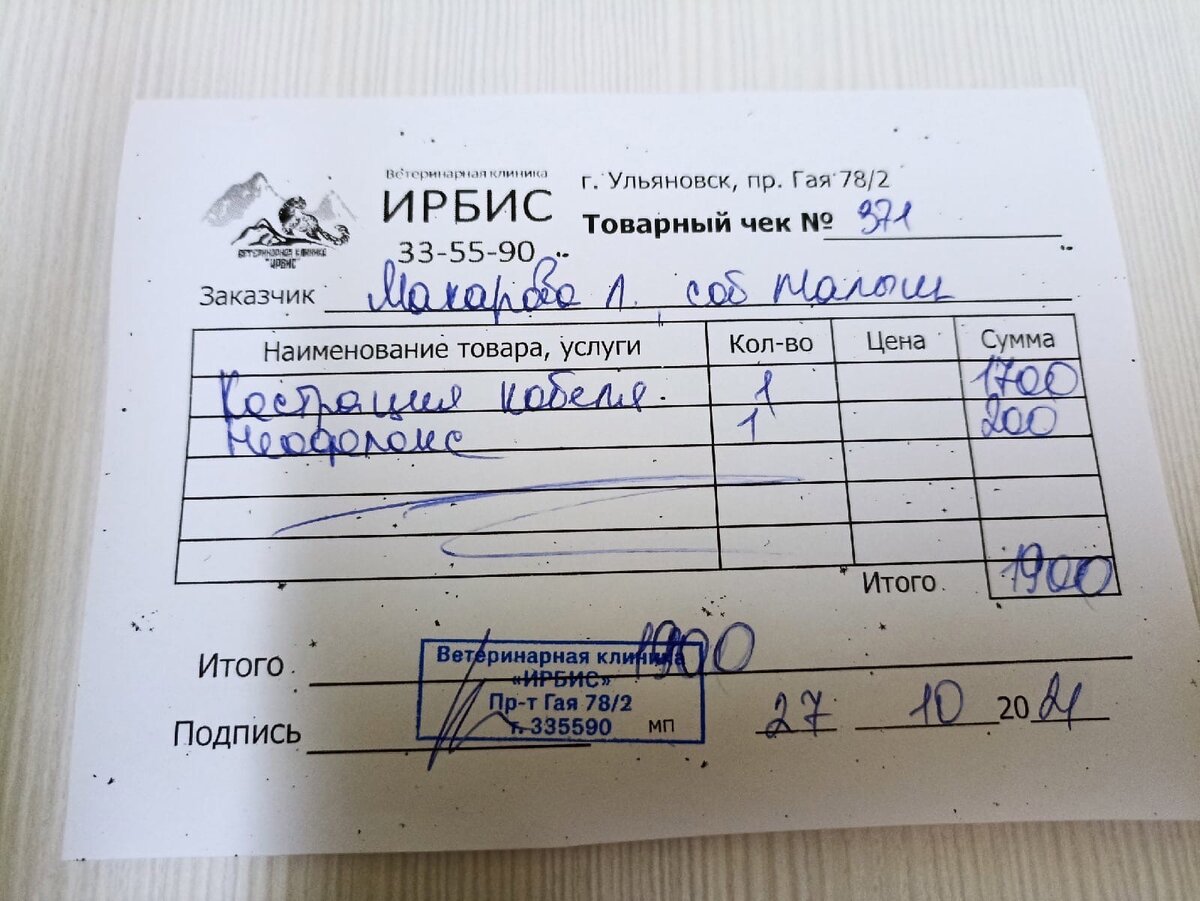 Ветеринарная клиника
ИРБИС
33-55-90
ВЕТЕРИНАРНАЯ КЛИНИКА
"ИРБИС"
г. Ульяновск, пр. Гая 78/2
Товарный чек № 371
Заказчик Макарова Л. соб Малыш
Наименование товара, услуги Кол-во Цена Сумма
Кастрация кобеля. 1 1700
1 200
Итого 1900
Итого 1900
Ветеринарная клиника
«ИРБИС»
Пр-т Гая 78/2
т. 335590
Подпись мп 27 10 2021